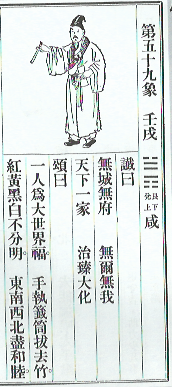 第五十九象 壬戌
艮下兌上 咸
讖曰
無城無府 無爾無我
天下一家 治臻大化
頌曰
一人為大世界福。 手執籤筒拔去竹。
紅黃黑白不分明。 東南西北盡和睦。